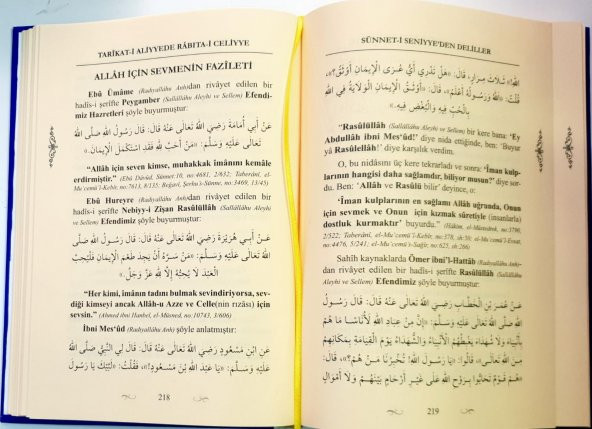 TARÎKAT-İ ALİYYEDE RÂBITA-İ CELİYYE
ALLÂH İÇİN SEVMENİN FAZÎLETİ
Ebû Ümâme (Radıyallâhu Anh)dan rivâyet edilen bir
hadîs-i şerîfte Peygamber (Sallâllâhu Aleyhi ve Sellem) Efendi-
miz Hazretleri şöyle buyurmuştur:
عَنْ أَبِي أُمَامَةَ رَضِيَ اللَّهُ تَعَالَى عَنْهُ قَالَ: قَالَ رَسُولُ اللَّهِ صَلَّى اللَّهُ
عَلَيْهِ وَسَلَّمَ: «مَنْ أَحَبَّ لِلَّهِ فَقَدِ اسْتَكْمَلَ الْإِيمَانَ.»
“Allâh için seven kimse, muhakkak îmânını kemâle
erdirmiştir.” (Ebû Dâvûd, Sünnet:10, no:4681, 2/632; Taberânî, el-
Mu'cemü'l-Kebîr, no:7613, 8/135; Beğavî, Şerhu's-Sünne, no:3469, 13/45)
Ebû Hureyre (Radıyallâhu Anh)dan rivâyet edilen bir
hadîs-i şerîfte Nebiyy-i Zîşan Rasûlüllâh (Sallâllâhu Aleyhi
ve Sellem) Efendimiz şöyle buyurmuştur:
عَنْ أَبِي هُرَيْرَةَ رَضِيَ اللَّهُ تَعَالَى عَنْهُ قَالَ: قَالَ رَسُولُ اللَّهِ صَلَّى اللَّهُ
تَعَالَى عَلَيْهِ وَسَلَّمَ: «مَنْ سَرَّهُ أَنْ يَجِدَ طَعْمَ الْإِيمَانِ فَلْيُحِبَّ
الْعَبْدَ لَا يُحِبُّهُ إِلَّا لِلَّهِ عَزَّ وَجَلَّ.»
“Her kimi, îmânın tadını bulmak sevindiriyorsa, sev-
diği kimseyi ancak Allâh-u Azze ve Celle(nin rızâsı) için
sevsin.” (Ahmed ibni Hanbel, el-Müsned, no:10743, 3/606)
İbni Mes‘ûd (Radıyallâhu Anh) şöyle anlatmıştır:
عَنِ ابْنِ مَسْعُودٍ رَضِيَ اللَّهُ تَعَالَى عَنْهُ قَالَ: قَالَ لِي النَّبِيُّ صَلَّى اللَّهُ
عَلَيْهِ وَسَلَّمَ: «يَا عَبْدَ اللَّهِ بْنَ مَسْعُودٍ!»، فَقُلْتُ: «لَبَّيْكَ يَا رَسُولَ
218
SÜNNET-İ SENİYYE'DEN DELİLLER
اللَّهِ!» ثَلَاثَ مِرَارٍ، قَالَ: «هَلْ تَدْرِي أَيُّ عُرَى الْإِيمَانِ أَوْثَقُ؟»
قُلْتُ: «اللَّهُ وَرَسُولُهُ أَعْلَمُ»، قَالَ: «أَوْثَقُ الْإِيمَانِ الْوَلَايَةُ فِي اللَّهِ
بِالْحُبِّ فِيهِ وَالْبُغْضِ فِيهِ.»
“Rasûlüllâh (Sallâllâhu Aleyhi ve Sellem) bir kere bana: ‘Ey
Abdullâh ibni Mes‘ûd!’ diye nida ettiğinde, ben: ‘Buyur
yâ Rasûlellâh!’ diye karşılık verdim.
O, bu nidâsını üç kere tekrarladı ve sonra: ‘Îman kulp-
larının hangisi daha sağlamdır, biliyor musun?’ diye sor-
du. Ben: ‘Allâh ve Rasûlü bilir’ deyince, o:
‘Îman kulplarının en sağlamı Allâh uğrunda, Onun
için sevmek ve Onun için kızmak sûretiyle (insanlarla)
dostluk kurmaktır’ buyurdu.” (Hâkim, el-Müstedrek, no:3790,
2/522; Taberânî, el-Mu'cemü'l-Kebîr, no:378, sh:50; el-Mu'cemü'l-Evsat,
no:4476, 5/241; el-Mu'cemü's-Sağîr, no:625, sh:266)
Sahîh kaynaklarda Ömer ibni'l-Hattâb (Radıyallâhu Anh)
dan rivâyet edilen bir hadîs-i şerîfte Rasûlüllâh (Sallâllâhu
Aleyhi ve Sellem) Efendimiz şöyle buyurmuştur:
عَنْ عُمَرَ بْنِ الْخَطَّابِ رَضِيَ اللَّهُ تَعَالَى عَنْهُ قَالَ: قَالَ رَسُولُ
اللَّهِ صَلَّى اللَّهُ تَعَالَى عَلَيْهِ وَسَلَّمَ: «إِنَّ مِنْ عِبَادِ اللَّهِ لَأُنَاسًا مَا هُمْ
بِأَنْبِيَاءَ وَلَا شُهَدَاءَ يَغْبِطُهُمُ الْأَنْبِيَاءُ وَالشُّهَدَاءُ يَوْمَ الْقِيَامَةِ بِمَكَانِهِمْ
مِنَ اللَّهِ تَعَالَى»، قَالُوا: «يَا رَسُولَ اللَّهِ! تُخْبِرُنَا مَنْ هُمْ؟»، قَالَ:
«هُمْ قَوْمٌ تَحَابُّوا بِرُوحِ اللَّهِ عَلَى غَيْرِ أَرْحَامٍ بَيْنَهُمْ وَلَا أَمْوَالٍ
219